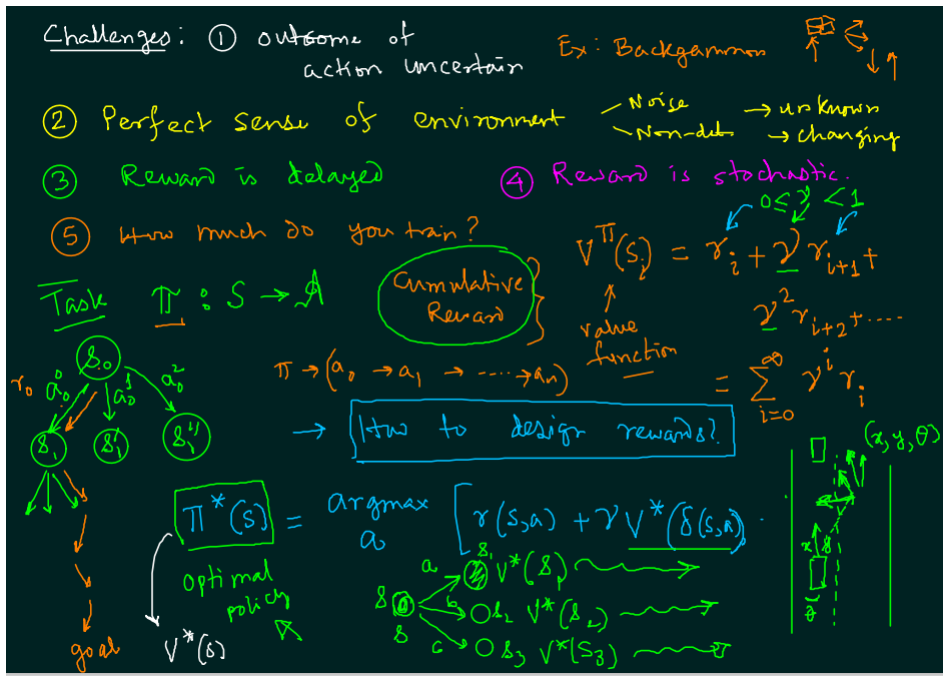 Challenges: ① outcome of
action uncertain
Ex: Backgammon
② Perfect sense of environment
Noise → unknown
Non-det → changing
③ Reward is delayed
④ Reward is stochastic.
⑤ How much do you train?
0 ≤ γ < 1
V^π(S_i) = r_i + γ r_{i+1} +
γ² r_{i+2} + ....
= Σ_{i=0}^{∞} γ^i r_i
value
function
Cumulative
Reward
Task π : S → A
π → (a_0 → a_1 → ----→ a_n)
→ How to design rewards?
s_0
r_0 a_0^0 a_0^1 a_0^2
s_1 s_1' s_1''
goal
(x, y, θ)
π*(s) = argmax_a [r(s,a) + γ V*(δ(s,a))
optimal
policy
V*(s)
s
a s_1 V*(s_1)
b s_2 V*(s_2)
c s_3 V*(s_3)